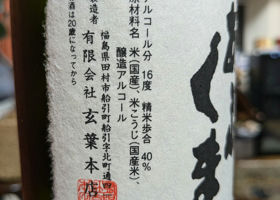 くま
アルコール分 16度 精米歩合 40%
原材料名 米(国産)、米こうじ(国産米)、
醸造アルコール
製造者
福島県田村市船引町船引字北町通四
有限会社 玄葉本店
酒は20歳になってから